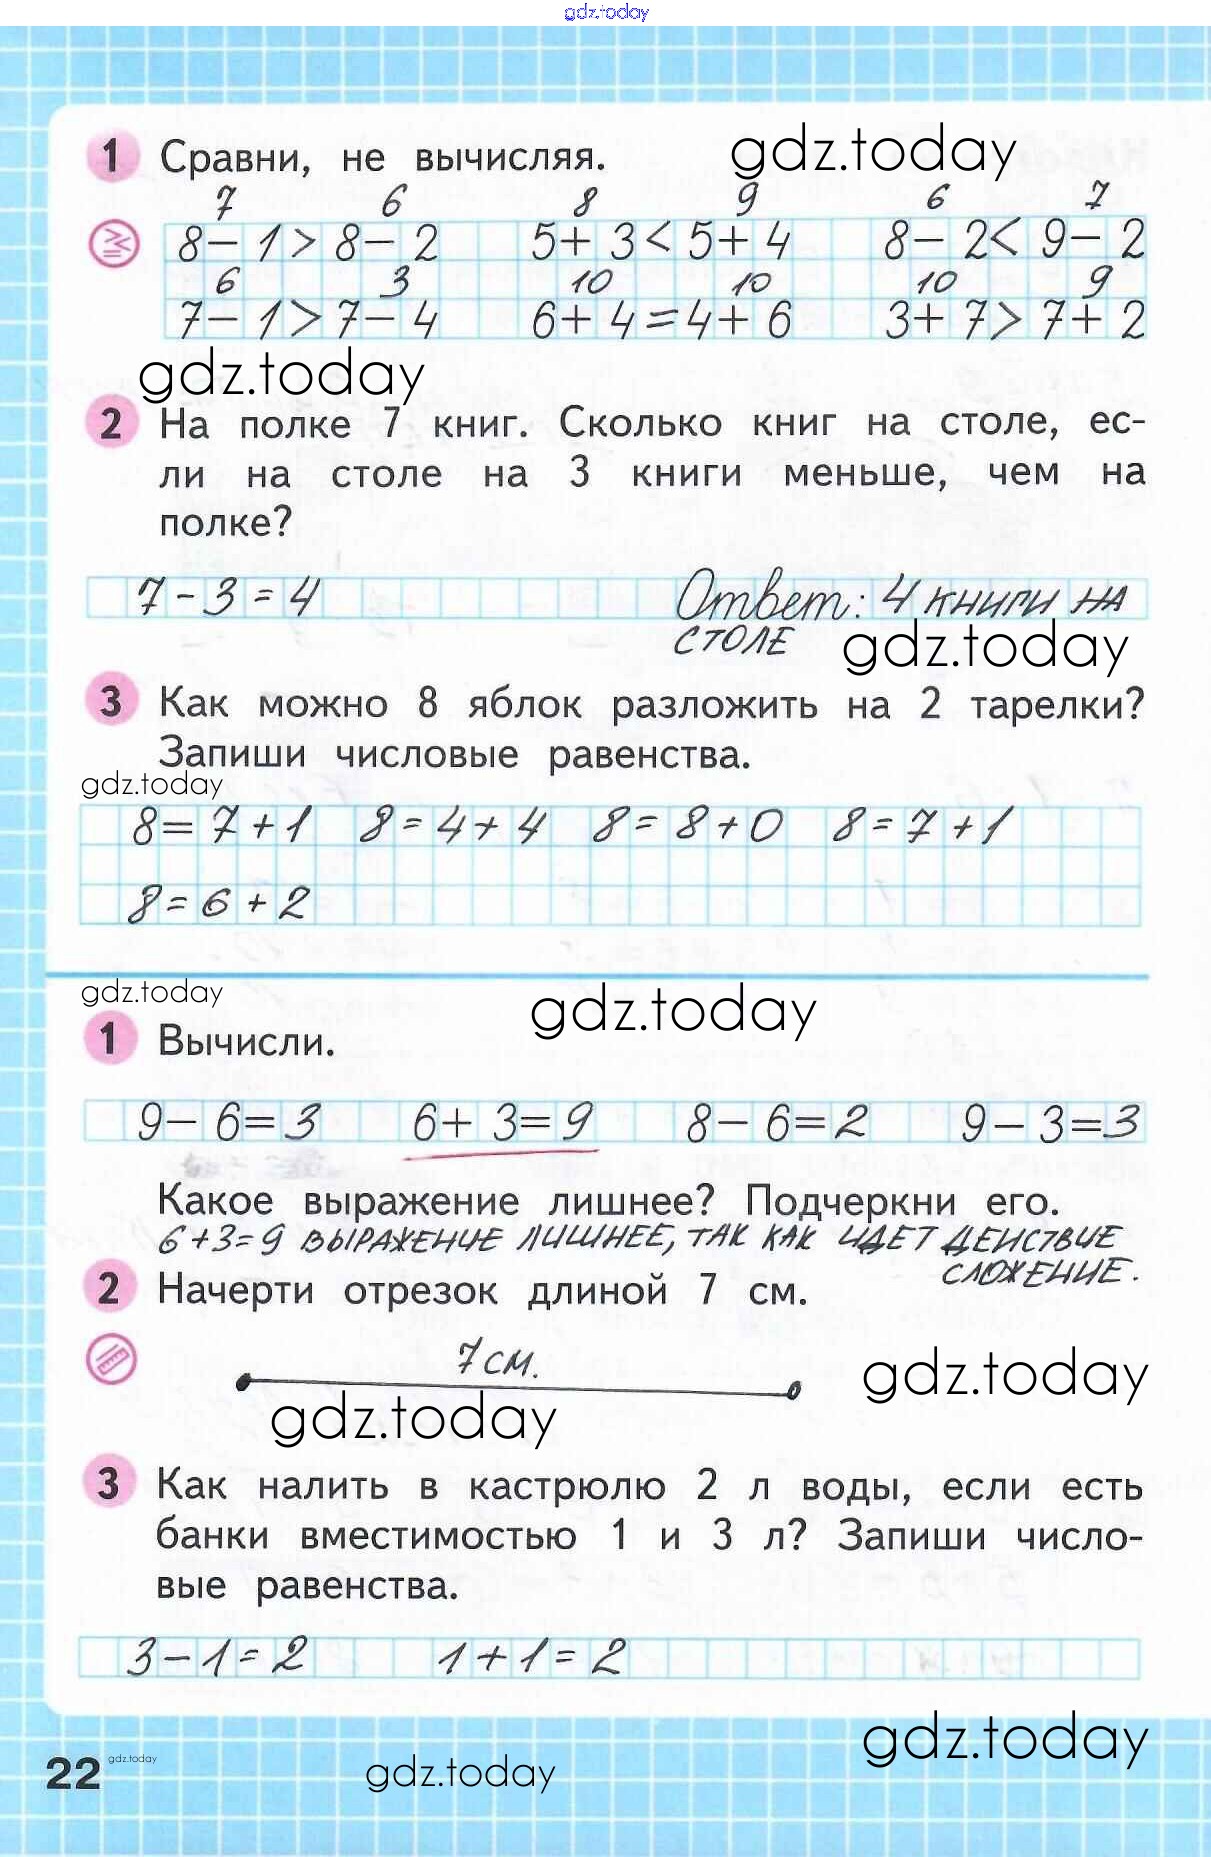 gdz.today
1 Сравни, не вычисляя. gdz.today
7 6 8 9 6 7
8-1>8-2 5+3<5+4 8-2<9-2
6 3 10 10 10 9
7-1>7-4 6+4=4+6 3+7>7+2
gdz.today
2 На полке 7 книг. Сколько книг на столе, ес-
ли на столе на 3 книги меньше, чем на
полке?
7-3=4 Ответ: 4 книги на
столе gdz.today
3 Как можно 8 яблок разложить на 2 тарелки?
Запиши числовые равенства.
gdz.today
8=7+1 8=4+4 8=8+0 8=7+1
8=6+2
gdz.today gdz.today
1 Вычисли.
9-6=3 6+3=9 8-6=2 9-3=3
Какое выражение лишнее? Подчеркни его.
6+3=9 выражение лишнее, так как идет действие
сложение.
2 Начерти отрезок длиной 7 см.
7 см.
gdz.today
gdz.today
3 Как налить в кастрюлю 2 л воды, если есть
банки вместимостью 1 и 3 л? Запиши число-
вые равенства.
3-1=2 1+1=2
gdz.today
22 gdz.today gdz.today